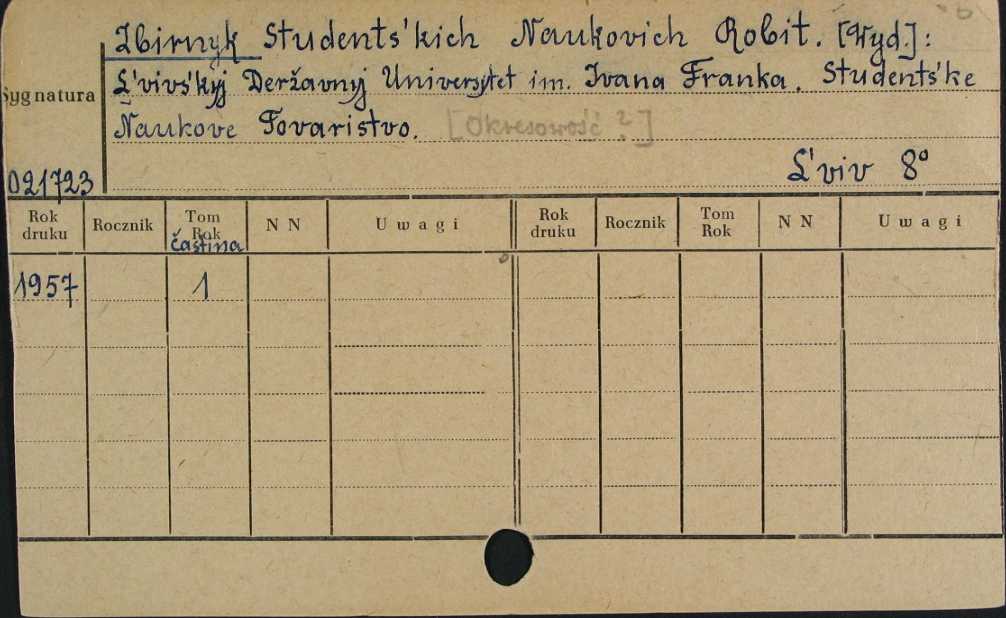 Zbirnyk Students'kich Naukovich Robit. [Wyd.]:
L'vivs'kyj Deržavnyj Universytet im. Ivana Franka. Students'ke
Sygnatura
Naukove Tovaristvo. [Okresowość ?]
L'viv 8°
021723
Rok druku Rocznik Tom Rok častina N N Uwagi Rok druku Rocznik Tom Rok N N Uwagi
1957 1